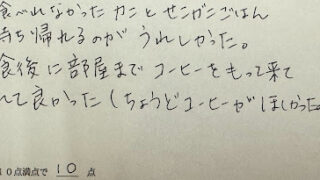 食べれなかった カニ と せんべい ごはん
持ち帰れるのが うれしかった。
食後に部屋まで コーヒーをもって来て
れて良かった (ちょうどコーヒーがほしかった。
10点満点で 10 点